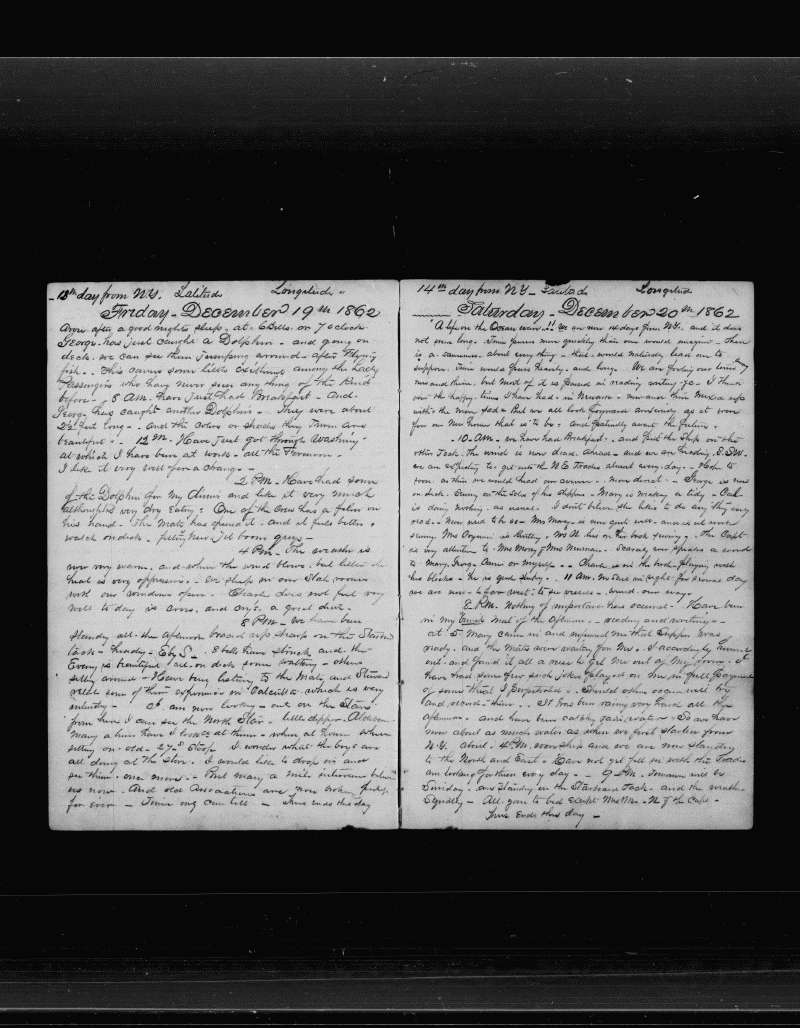 13th day from N.Y. Latitude Longitude
Friday - December 19th 1862
Arose after a good nights sleep at 6 Bells. or 7 oclock
George has just caught a Dolphin - and going on
deck. we can see them jumping around - after Flying
fish. This causes some little excitement among the Lady
Passengers who have never seen any thing of the kind
before - 8 AM. have just had Breakfast - And
George has caught another Dolphin. They were about
2½ feet long - and the colors or shades they turn are
beautiful. 12 M. Have just got through Washing
at which I have been at work - all the Forenoon.
I like it very well for a change -
2 PM - Have had some
of the Dolphin for my dinner and like it very much
although very dry Eating. One of the Crew has a felon on
his hand. The Mate has opened it - and it feels better.
watch on deck - fitting new jib boom guys -
4 PM - The weather is
now very warm, and when the wind blows. but little the
heat is very oppressive. We sleep in our State rooms
with our windows open. Charlie does not feel very
well to day is cross, and crys a good deal.
8 PM - We have been
standing all the afternoon broad off sharp on the Starboard
tack - heading - E by S - . 8 bells have struck and the
Evening is beautiful all on deck some waltzing - others
sitting around - Have been listening to the Mate and Steward
relate some of their experiences in Calcutta which is very
- I am now looking - out on the Stars
from here I can see the North Star - little dipper.
Many a time have I looked at them - when at home when
sitting on old - 27 Stoop I wonder what the boys are
all doing at the Store. I would like to drop in and
see them. once more - But many a mile intervenes between
us now. And old Associations are now broken,
for ever - Time only can tell - Thus ends this day
14th day from N.Y - Latitude Longitude
Saturday - December 20th 1862
"A life on the Ocean wave"!! we are now 14 days from N.Y. and it does
not seem long. Time passes more quickly than one would imagine - There
is a sameness about every thing - that would naturally lead one to
suppose. Time would pass heavily. and long. We are fooling our time away
now and then. but most of it is passed in reading writing &c. I think
over the happy times I have had in Newark - now and then Mixed up
with the more sad - But we all look forward anxiously as it were
for our New home that is to be. and patiently await the future.
10 AM - we have had Breakfast. and put the Ship on the
other Tack. The wind is now dead Ahead - and we are heading E.S.W.
we are expecting to get into the N.E. Trades almost every day - Hope to
soon as then we would have more direct - George is now
on deck. Emery on the Sofa of his Slippers - Mary is making a tidy - Cal
is doing nothing. as usual. I don't believe she likes to do any thing very
- Mrs Morey is now quite well. and is at work
sewing Mrs Boyman is knitting. Mrs N. lies on her back sewing. The Capt
is very attentive to Mrs Morey & Mrs Newman. Scarcely ever speaks a word
to Mary, George. Carrie or myself. Charlie is in the bath playing with
his blocks - he is good today. 11 Am. No Sail in sight for several day
we are now - to far west, to see vessels bound our way -
2 P.M. Nothing of importance has occured - Have been
in my trunk most of the Afternoon - reading and writing -
at 5. Mary came in and informed me that Supper was
ready. and the Mates were waiting for Me. I accordingly turned
out and found it all a ruse to get me out of My room. I
have had some few such jokes played on me in full payment
of some that I perpetrated. Should other occur will try
and record them. It has been raining very hard all the
afternoon. and have been catching rain water - So we have
now about as much water as when we first started from
N.Y. about 4 P.M. wore ship and we are now standing
to the North and East - Have not yet fell in with the Trades
am looking for them every day - 9 P.M. Tomorrow will be
Sunday. are standing on the Starboard Tack - and the weather
Squally - All gone to bed except Mrs M - N & the Capt -
Thus Ends this day -